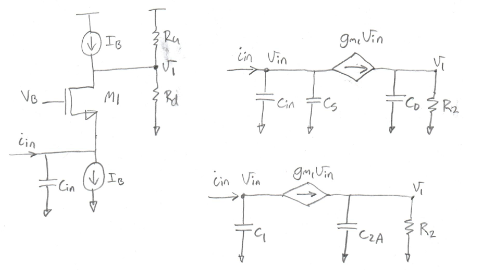 I_B
R_u
V_1
V_B
M_1
R_d
i_in
C_in
I_B
i_in
V_in
g_m1 V_in
V_1
C_in
C_S
C_D
R_2
i_in
V_in
g_m1 V_in
V_1
C_1
C_2A
R_2